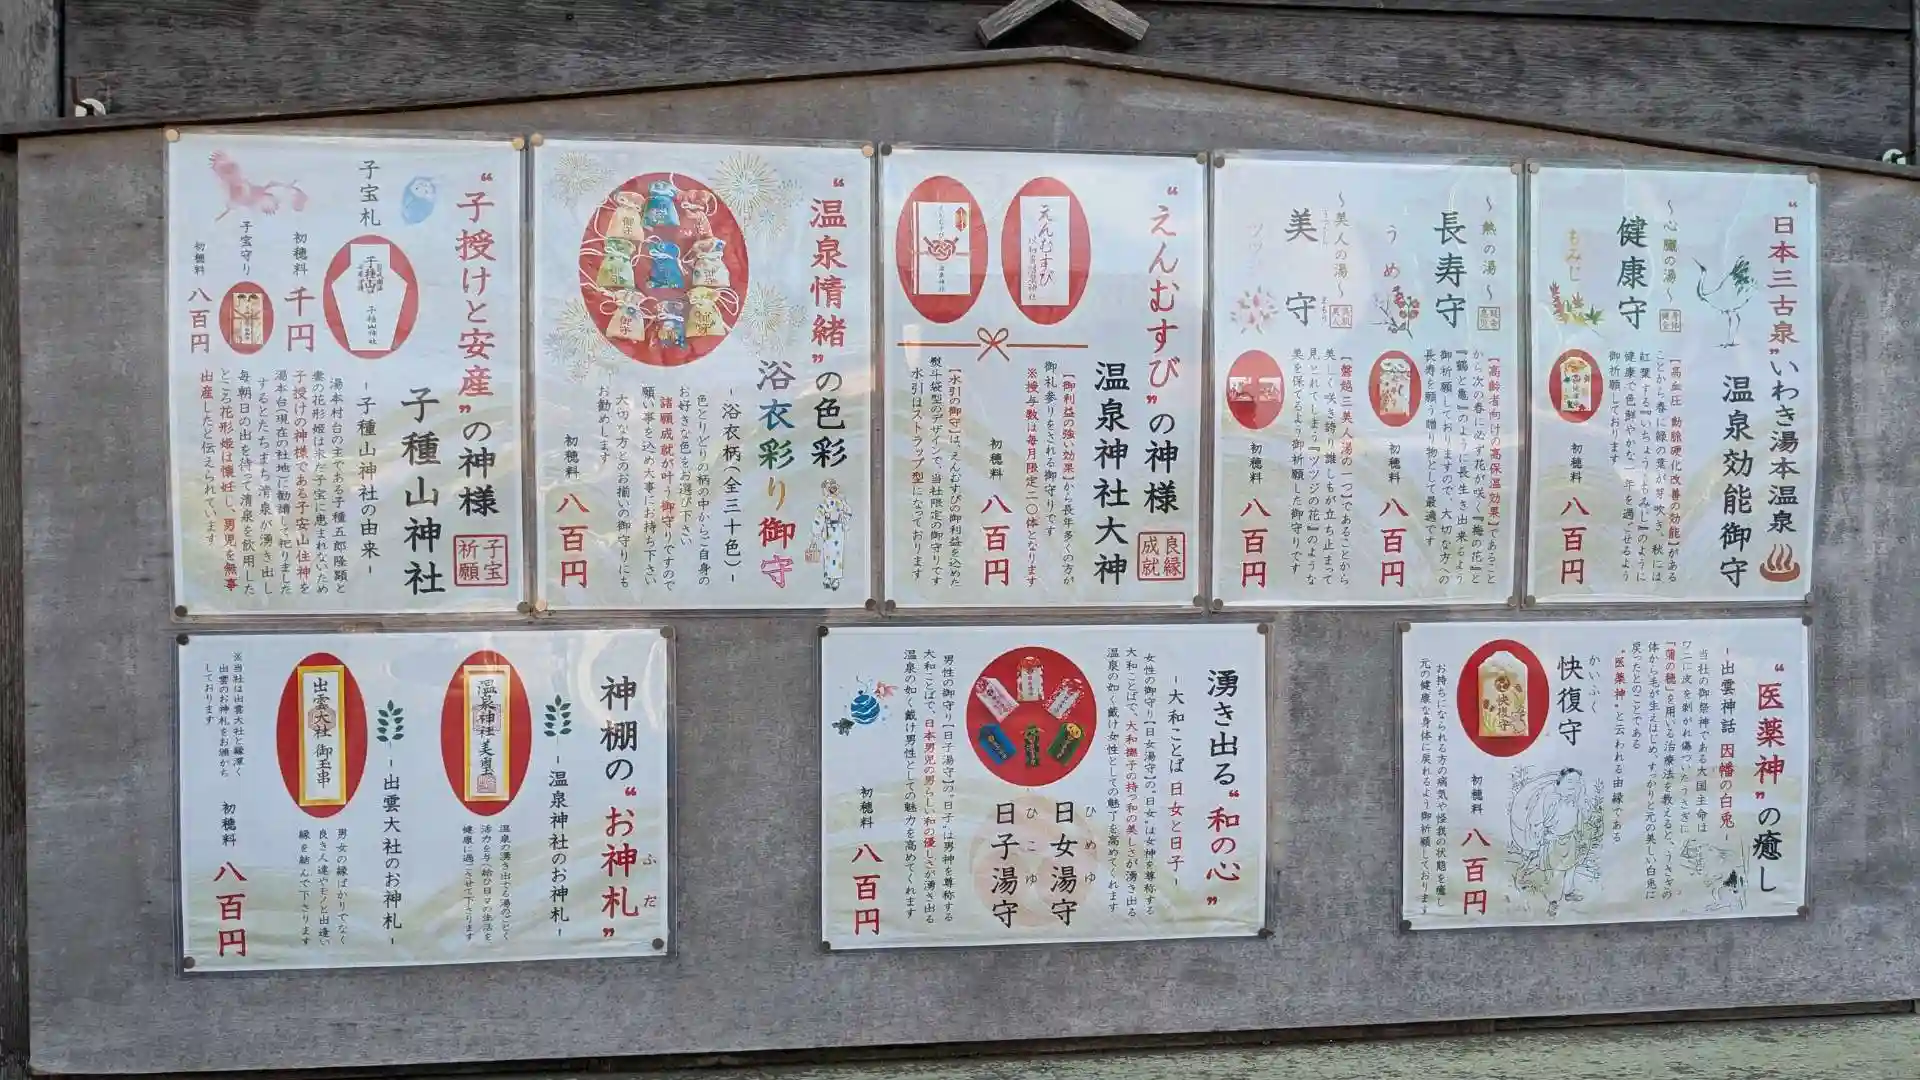 “日本三古泉”いわき湯本温泉
温泉効能御守
～心臓の湯～
健康守
もみじ
【高血圧 動脈硬化改善の効能】がある
ことから春に緑の葉が芽吹き、秋には
紅葉する『いちょうともみじ』のように
健康で色鮮やかな一年を過ごせるよう
御祈願しております
初穂料
八百円
～熱の湯～
長寿守
うめ
【高齢者向けの高保温効果】であること
から次の春に必ず花が咲く『梅の花』と
『鶴と亀』のように長生き出来るよう
御祈願しておりますので、大切な方への
長寿を願う贈り物として最適です
初穂料
八百円
～美人の湯～
美守
まもり
ツツジ
【磐越三美人湯の一つ】であることから
美しく咲き誇り誰しもが立ち止まって
見とれてしまう『ツツジの花』のような
美を保てるよう御祈願した御守りです
初穂料
八百円
“えんむすび”の神様
良縁成就
温泉神社大神
えんむすび
【御利益の強い効果】から長年多くの方が
御礼参りをされる御守りです
※授与数は毎月限定二〇体となります
初穂料
八百円
【水引の御守】は、えんむすびの御利益を込めた
熨斗袋型のデザインで、当社限定の御守りです
水引はストラップ型になっております
“温泉情緒”の色彩
浴衣彩り御守
-浴衣柄(全三十色)-
色とりどりの柄の中からご自身の
お好きな色をお選び下さい
諸願成就が叶う御守りですので
願い事を込め大事にお持ち下さい
大切な方とのお揃いの御守りにも
お勧めします
初穂料
八百円
“子授けと安産”の神様
子宝祈願
子種山神社
-子種山神社の由来-
子宝札
初穂料
千円
子宝守り
初穂料
八百円
湯本村台の主である子種五郎隆顕と
妻の花形姫は未だ子宝に恵まれないため
子授けの神様である子安山住神を
湯本台(現在の社地)に勧請して祀りました
するとたちまち清泉が湧き出し
毎朝日の出を待って清泉を飲用した
ところ花形姫は懐妊し、男児を無事
出産したと伝えられています
“医薬神”の癒し
-出雲神話 因幡の白兎-
当社の御祭神である大国主命は
ワニに皮を剥がれ傷ついたうさぎに
『蒲の穂』を用いる治療法を教えると、うさぎの
体から毛が生えはじめ、すっかりと元の美しい白兎に
戻ったとのことである
“医薬神”と云われる由縁である
かいふく
快復守
お持ちになられる方の病気や怪我の状態を癒し
元の健康な身体に戻れるよう御祈願しております
初穂料
八百円
湧き出る“和の心”
-大和ことば 日女と日子-
女性の御守り【日女湯守】の“日女”は女神を尊称する
大和ことばで、大和撫子の持つ和の美しさが湧き出る
温泉の如く戴け女性としての魅力を高めてくれます
日女湯守
ひめゆ
日子湯守
ひこゆ
男性の御守り【日子湯守】の“日子”は男神を尊称する
大和ことばで、日本男児の男らしい和の優しさが湧き出る
温泉の如く戴け男性としての魅力を高めてくれます
初穂料
八百円
神棚の“お神札”
ふだ
-温泉神社のお神札-
温泉の湧き出する湯のごとく
活力を与え給ひ日々の生活を
健康に過ごさせて下さります
-出雲大社のお神札-
出雲大社 御玉串
男女の縁ばかりでなく
良き人達やモノと出逢い
縁を結んで下さります
※当社は出雲大社と縁深く
出雲のお神札をお頒かち
しております
初穂料
八百円